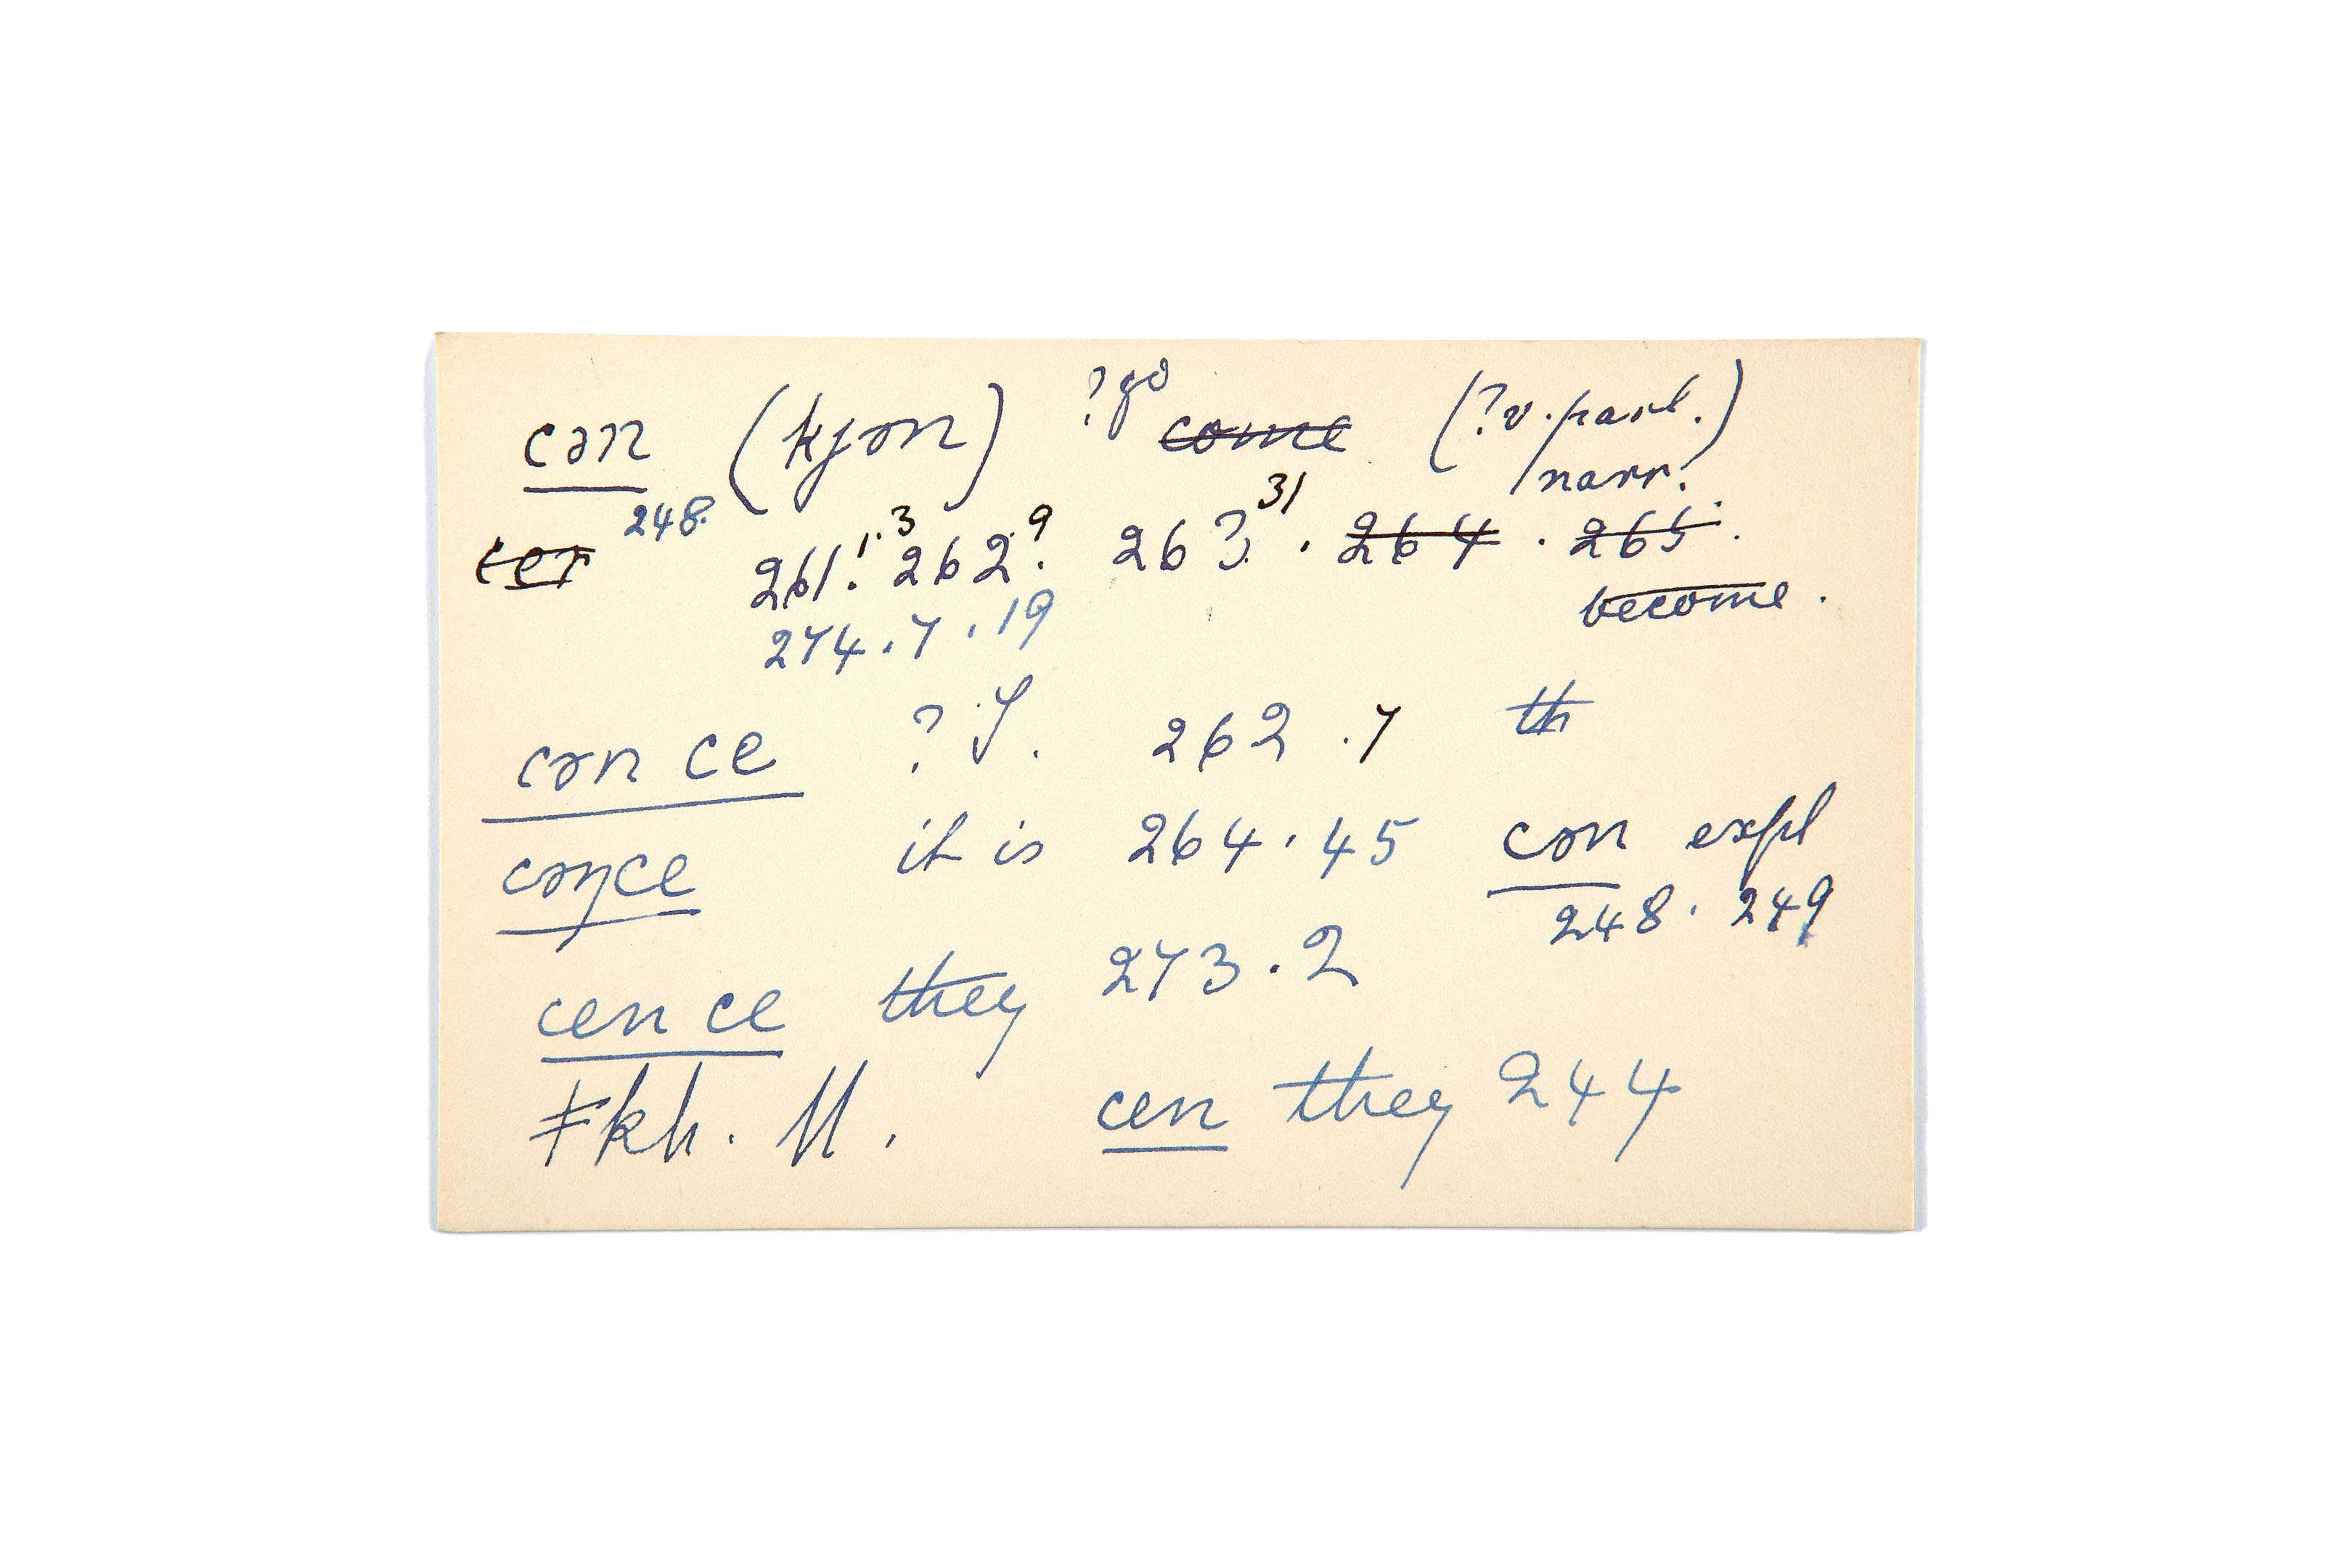 cən (kjən) ?go ~~come~~ (?v. part.)
narr.
~~cer~~ 248. 261.1.3 262.9 263.31 . ~~264~~ . ~~265~~ .
274.7.19 become.
cən ce ? 262.7 th
cəŋce it is 264.45 cən expl
248. 249
cen ce they 273.2
≠kh. 11. cen they 244